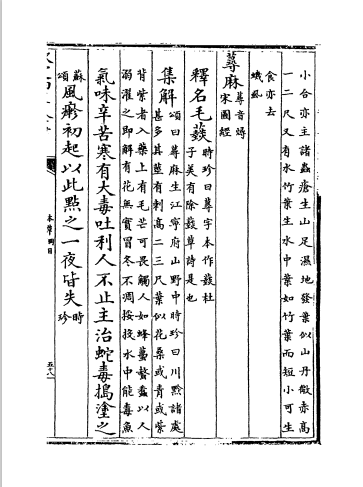 小合亦主諸蟲瘡生山足濕地發葉似山丹微赤高
一二尺又有水竹葉生水中葉如竹葉而短小可生
食亦去
蟻虱
蕁麻 蕁音尋
宋圖經
釋名毛䕭 時珍曰蕁字本作䕭杜
子美有除䕭草詩是也
集解 頌曰蕁麻生江寧府山野中時珍曰川黔諸處
甚多其莖有刺高二三尺葉似花桑或青或紫
背紫者入藥上有毛芒可畏觸人如蜂蠆螫蠚以人
溺濯之即解有花無實冒冬不凋挼投水中能毒魚
氣味辛苦寒有大毒吐利人不止主治蛇毒搗塗之
蘇頌
風疹初起以此點之一夜皆失 時珍
本草綱目